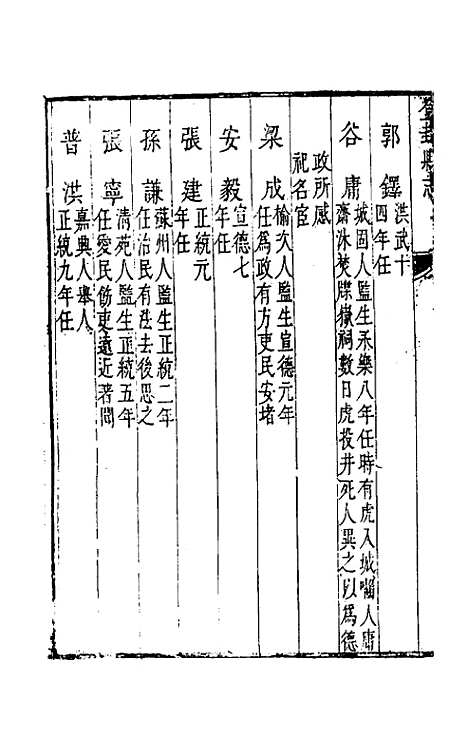 登封縣志
郭鐸 洪武十
四年任
谷庸 城固人監生永樂八年任時有虎入城囓人庸
齋沐焚牒嶽祠數日虎投井死人異之以為德
政所感
祀名宦
梁成 榆次人監生宣德元年
任為政有方吏民安堵
安毅 宣德七
年任
張建 正統元
年任
孫謙 蘇州人監生正統二年
任治民有法去後思之
張寧 清苑人監生正統五年
任愛民飭吏遠近著聞
普洪 嘉興人舉人
正統九年任